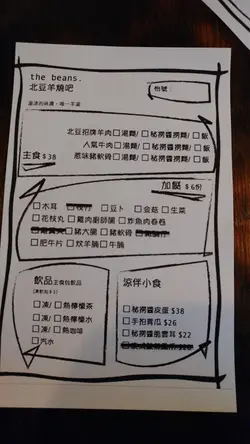 the beans.
北豆羊燒吧
份號
北豆招牌羊肉□湯麵/□秘撈醬撈麵/□飯
人氣牛肉□湯麵/□秘撈醬撈麵/□飯
惹味豬軟骨□湯麵/□秘撈醬撈麵/□飯
主食 $38
加餸 $6份
□木耳 □豆卜 □金菇 □生菜
□花枝丸 □雞肉廚師腸 □炸魚肉春卷
□豬大腸 □豬軟骨
□肥牛片 □炆羊腩□牛腩
飲品 主食包飲品
□凍/□熱檸檬茶
□凍/□熱檸檬水
□凍/□熱咖啡
□汽水
涼伴小食
□秘撈醬皮蛋 $38
□手拍青瓜 $26
□秘撈醬脆套耳 $22